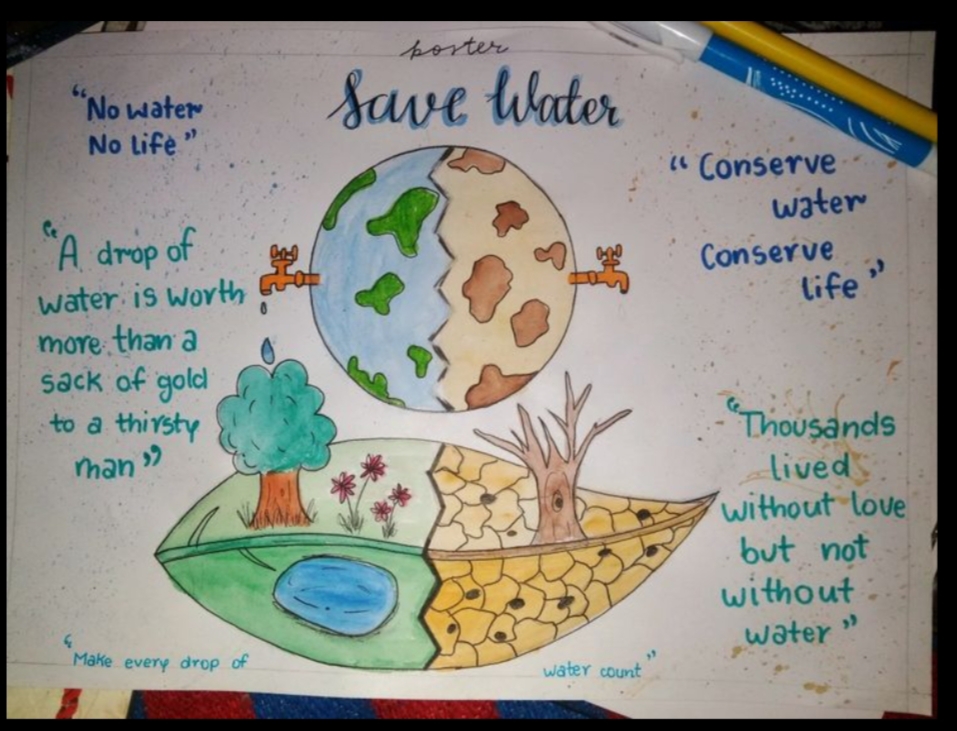 poster
Save Water
"No water
No life"
"A drop of
water is worth
more than a
sack of gold
to a thirsty
man"
"Conserve
water
Conserve
life"
"Thousands
lived
without love
but not
without
water"
"Make every drop of water count"